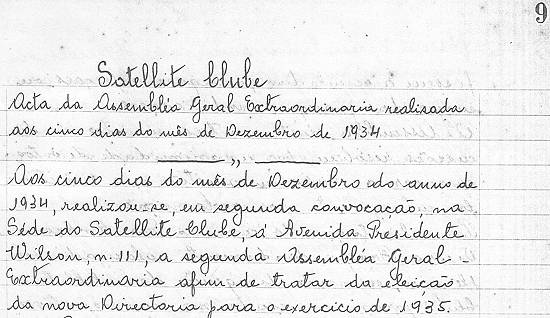 9
Satellite Clube
Acta da Assembléa Geral Extraordinaria realisada
aos cinco dias do mês de Dezembro de 1934
——— ,, ———
Aos cinco dias do mês de Dezembro do anno de
1934, realizou-se, em segunda convocação, na
Séde do Satellite Clube, á Avenida Presidente
Wilson, n. 111, a segunda Assembléa Geral
Extraordinaria afim de tratar da eleição
da nova Directoria para o exercicio de 1935.